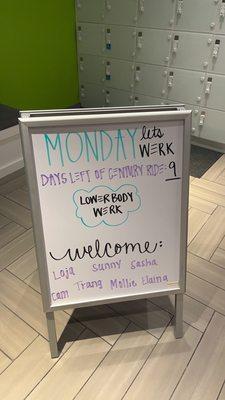 MONDAY lets
WERK
DAYS LEFT OF CENTURY RIDE: 9
LOWER BODY
WERK
welcome:
Loja Sunny Sasha
Cam Trang Mollie Elaina